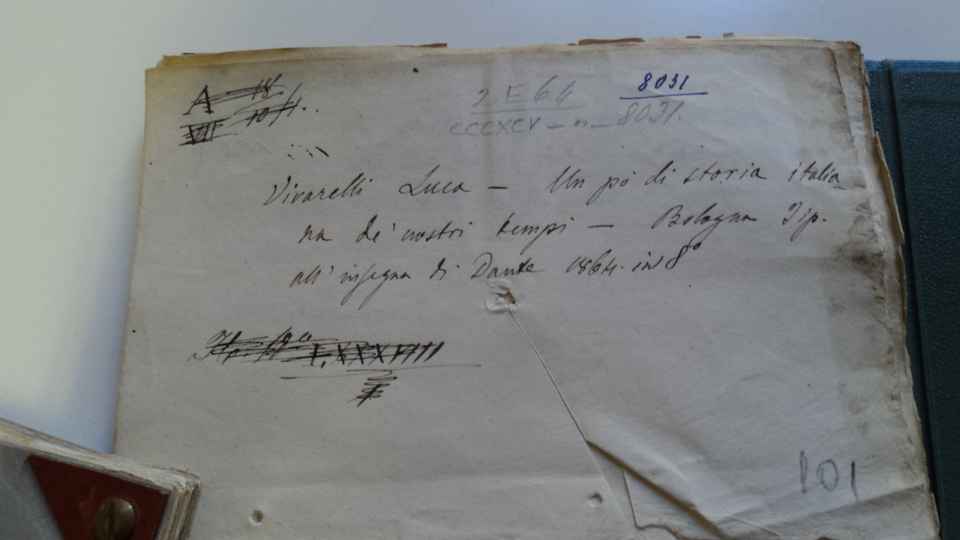 A 18
VII 10/1.
2 E 64
8031
CCCXCV - n - 8031.
Vivarelli Luca — Un pò di storia italia
na de' nostri tempi — Bologna Tip.
all'insegna di Dante 1864. in 8°
LXXXVIII
101